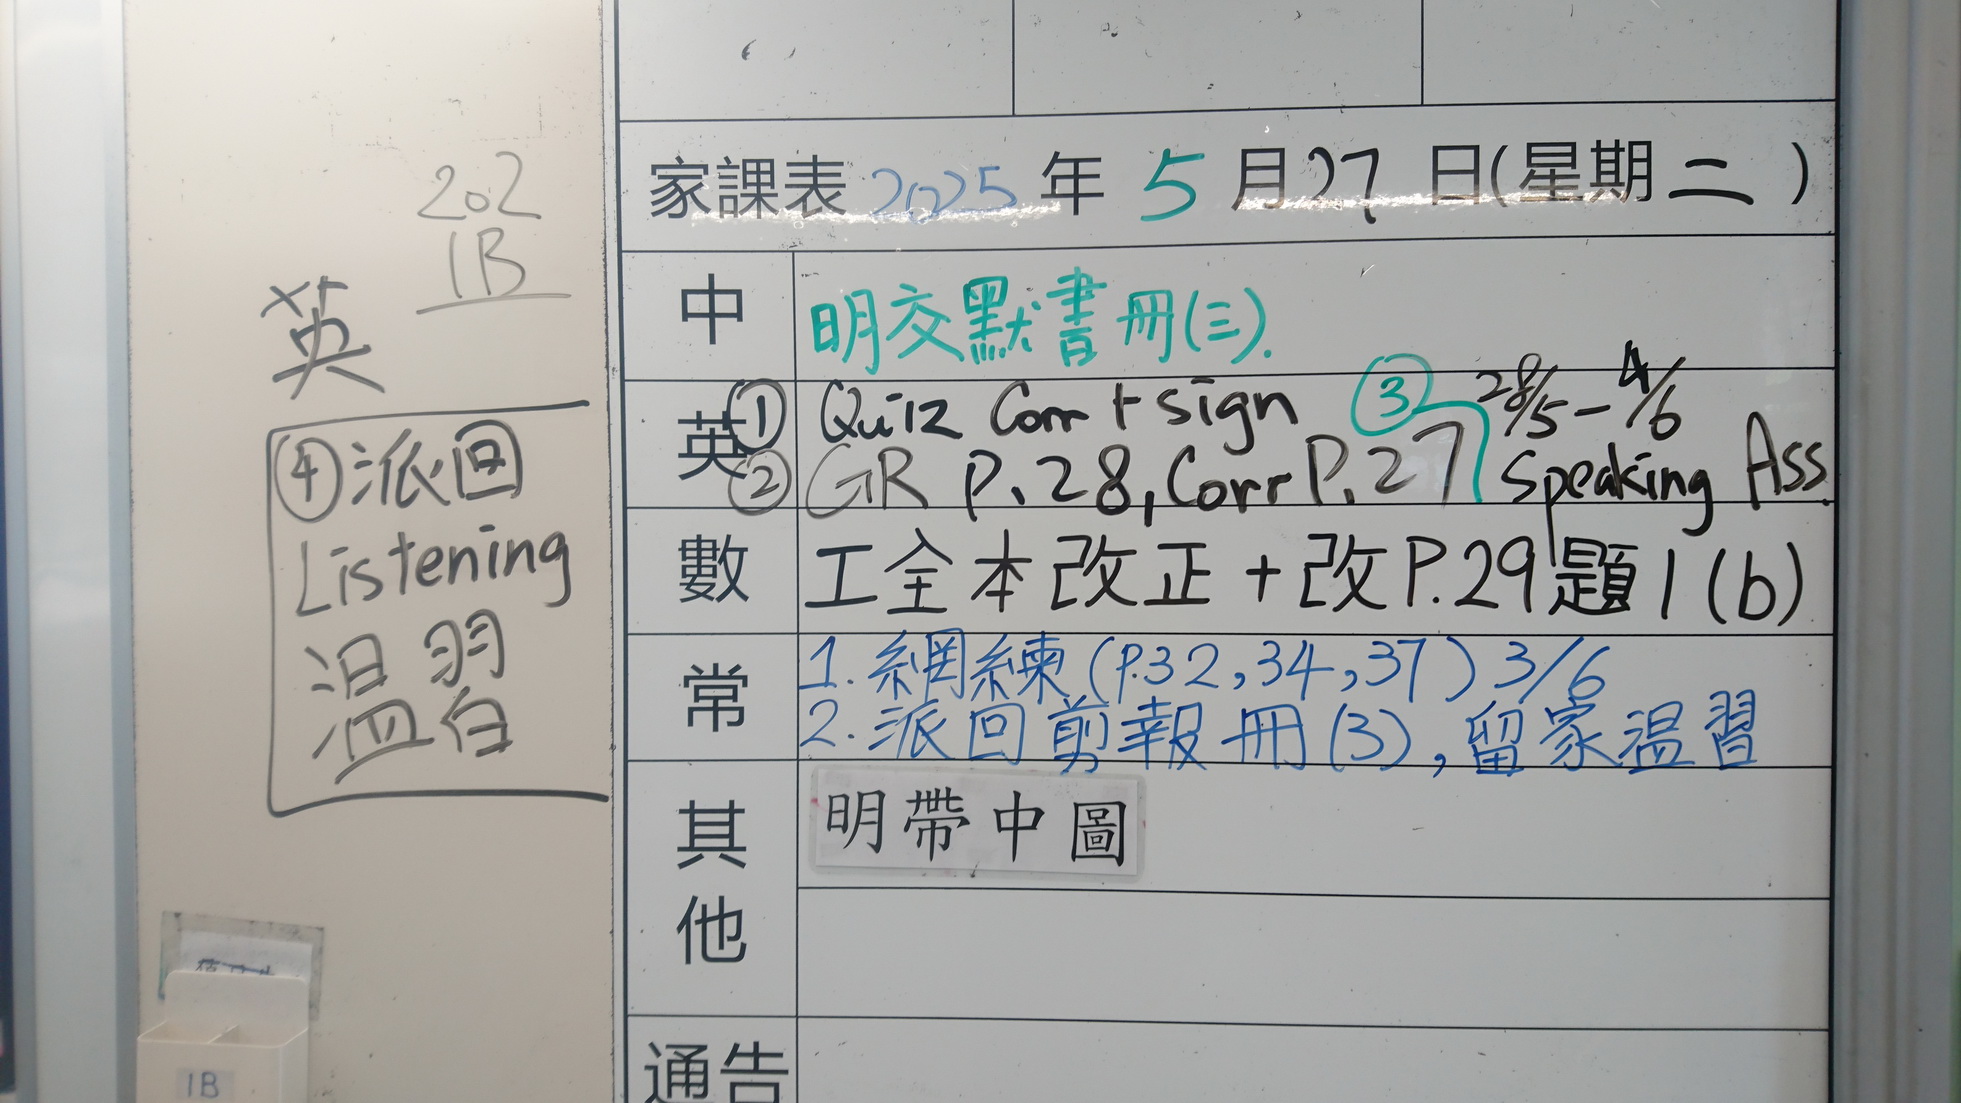 202
1B
英
④派回
Listening
溫習
家課表 2025 年 5 月 27 日(星期二)
中 明交默書冊(三).
英 ① Quiz Corr + sign ③ 28/5 - 4/6
② GR P.28, Corr P.27 Speaking Ass.
數 工全本改正 + 改P.29題1(b)
常 1. 網練(P.32,34,37) 3/6
2. 派回剪報冊(3),留家溫習
其他 明帶中圖
通告
1B